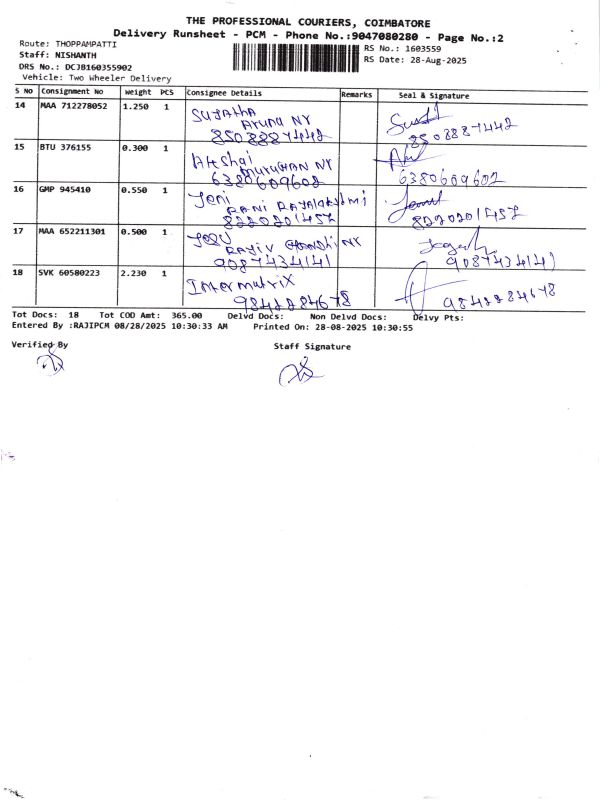 THE PROFESSIONAL COURIERS, COIMBATORE
Delivery Runsheet - PCM - Phone No.:9047080280 - Page No.:2
Route: THOPPAMPATTI
RS No.: 1603559
Staff: NISHANTH
RS Date: 28-Aug-2025
DRS No.: DCJB160355902
Vehicle: Two Wheeler Delivery
S NO Consignment No Weight PCS Consignee Details Remarks Seal & Signature
14 MAA 712278052 1.250 1 Sujatha
Aruna NY
8508887442 8508887442
15 BTU 376155 0.300 1 Akshai
Murugan NY
6380609602 6380609602
16 GMP 945410 0.550 1 Joni
Rani Rajalakshmi
8220201457 8220201457
17 MAA 652211301 0.500 1
Rajiv Gandhi NY
9087434141 9087434141
18 SVK 60580223 2.230 1 Intermatrix
9842284678 9842284678
Tot Docs: 18 Tot COD Amt: 365.00 Delvd Docs: Non Delvd Docs: Delvy Pts:
Entered By :RAJIPCM 08/28/2025 10:30:33 AM Printed On: 28-08-2025 10:30:55
Verified By Staff Signature